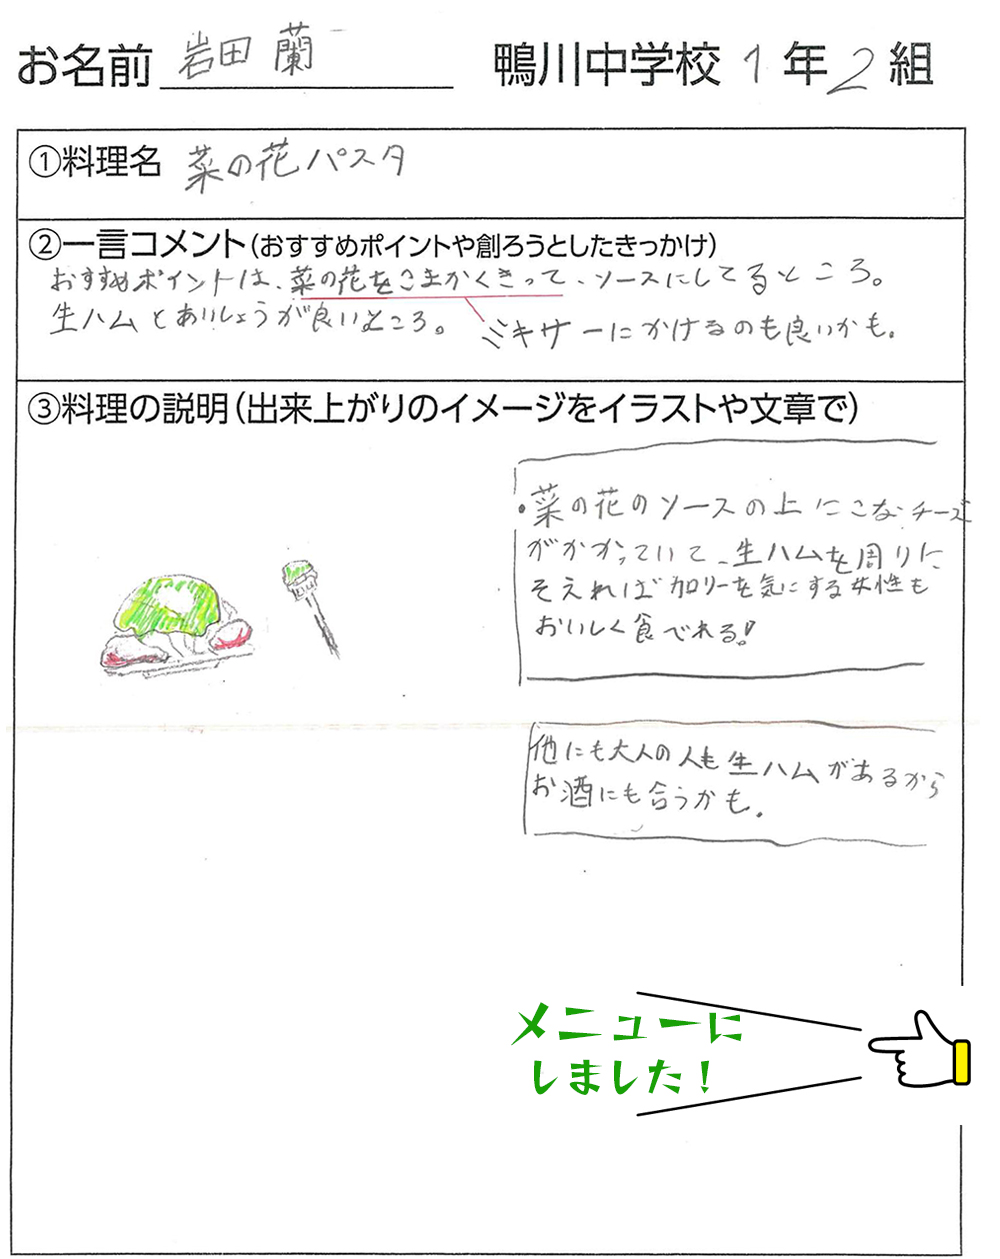 お名前 岩田 蘭 鴨川中学校 1年 2組
①料理名 菜の花パスタ
②一言コメント(おすすめポイントや創ろうとしたきっかけ)
おすすめポイントは、菜の花をこまかくきって、ソースにしてるところ。
生ハムとあいしょうが良いところ。
ミキサーにかけるのも良いかも。
③料理の説明(出来上がりのイメージをイラストや文章で)
・菜の花のソースの上にこなチーズ
がかかっていて、生ハムを周りに
そえればカロリーを気にする女性も
おいしく食べれる!
他にも大人の人も生ハムがあるから
お酒にも合うかも。
メニューに
しました!